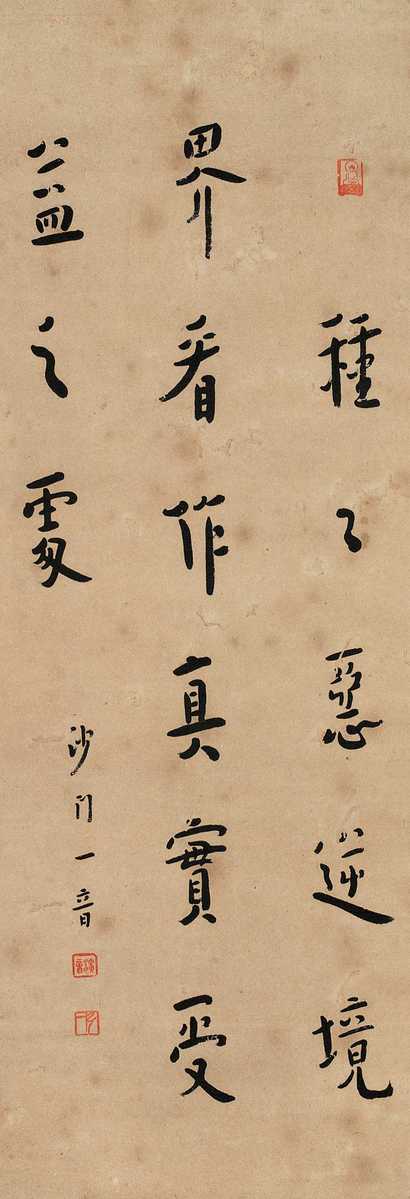 種々惡逆境
界看作真實受
益之處
沙門一音